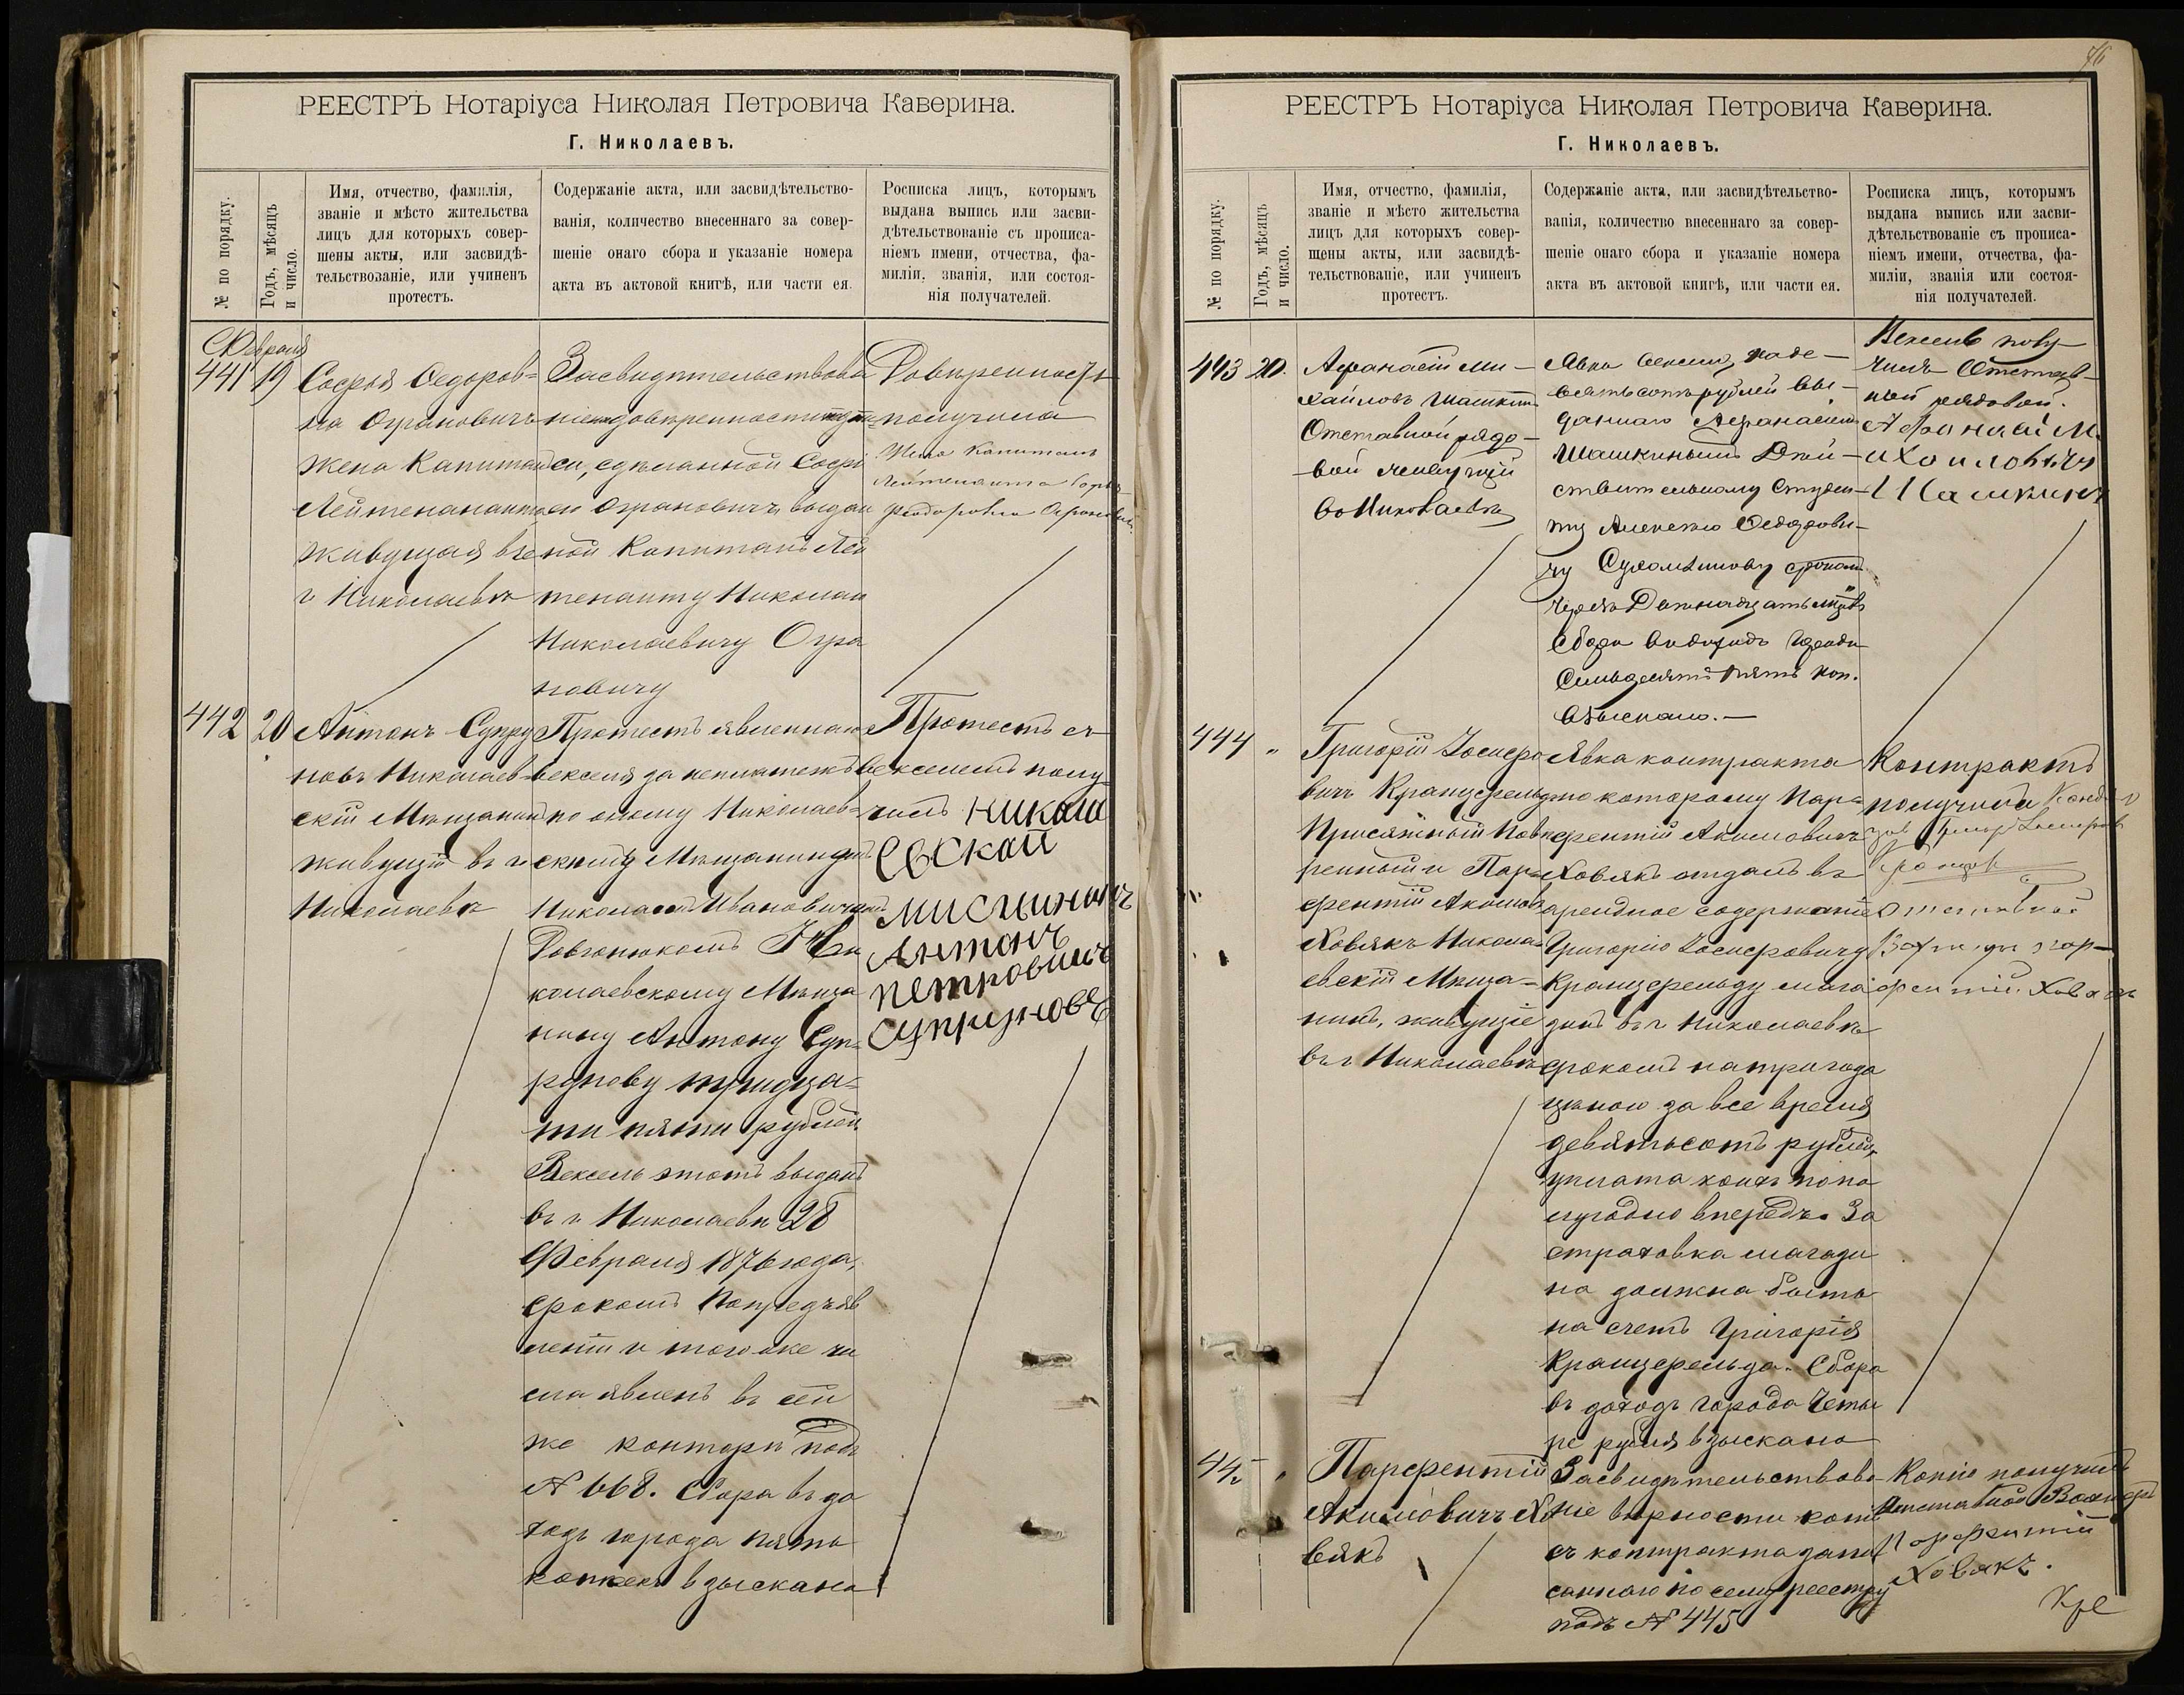 РЕЕСТРЪ Нотаріуса Николая Петровича Каверина.
Г. Николаевъ.
№ по порядку.
Годъ, мѣсяцъ
и число.
Имя, отчество, фамилія,
званіе и мѣсто жительства
лицъ для которыхъ совер-
шены акты, или засвидѣ-
тельствованіе, или учиненъ
протестъ.
Содержаніе акта, или засвидѣтельство-
ванія, количество внесеннаго за совер-
шеніе онаго сбора и указаніе номера
акта въ актовой книгѣ, или части ея.
Росписка лицъ, которымъ
выдана выпись или засви-
дѣтельствованіе съ прописа-
ніемъ имени, отчества, фа-
миліи, званія, или состоя-
нія получателей.
Февраля
441 19
Софья Федоров-
на Ограновичъ
жена Капитан
Лейтенанта
живущая въ
г Николаевѣ
Засвидѣтельствова
ніе довѣренности
си, сдѣланной Софі
ею Ограновичъ выдан
ной Капитанъ Лей
тенанту Николаю
Николаевичу Огра
новичу
Довѣренность
получила
Жена Капитанъ
Лейтенанта Софья
Федоровна Ограновичъ
442 20
Антонъ Супру
новъ Николаев
скій Мѣщанинъ
живущій въ г
Николаевѣ
Протестъ явленнаго
векселя за неплатежъ
по оному Николаев-
скимъ Мѣщаниномъ
Николаемъ Ивановичемъ
Довгонюкомъ Ни
колаевскому Мѣща
нину Антону Суп-
рунову тридца-
ти пяти рублей
Вексель этотъ выданъ
въ г Николаевѣ 28
Февраля 1876 года,
срокомъ по предъяв
леніи и того же чи
сла явленъ въ сей
же конторѣ подъ
№ 668. Сбора въ до
ходъ города пять
копѣекъ взыскано
Протестъ съ
векселемъ полу
чилъ Никола
евской
мисчининъ
Антонъ
петровичъ
супруновъ
76
РЕЕСТРЪ Нотаріуса Николая Петровича Каверина.
Г. Николаевъ.
№ по порядку.
Годъ, мѣсяцъ
и число.
Имя, отчество, фамилія,
званіе и мѣсто жительства
лицъ для которыхъ совер-
шены акты, или засвидѣ-
тельствованіе, или учиненъ
протестъ.
Содержаніе акта, или засвидѣтельство-
ванія, количество внесеннаго за совер-
шеніе онаго сбора и указаніе номера
акта въ актовой книгѣ, или части ея.
Росписка лицъ, которымъ
выдана выпись или засви-
дѣтельствованіе съ прописа-
ніемъ имени, отчества, фа-
миліи, званія или состоя-
нія получателей.
443 20.
Афанасій Ми-
хайловъ Шашкинъ
Отставной рядо-
вой живущій
во Николаевѣ
Явка векселя, на де-
вятьсотъ рублей вы-
даннаго Афанасіемъ
Шашкинымъ Дѣй-
ствительному Студен-
ту Алексѣю Федорови-
чу Сухомлинову срокомъ
чрезъ Двѣнадцать мѣс
Сбора въ доходъ города
Семьдесятъ пять коп.
взыскано.-
Вексель полу-
чилъ Отстав-
ной рядовой.
Афонасій М
ихоиловичъ
Шашкинъ
444 "
Григорій Іосифо
вичъ Кранцфельдъ
Присяжный Повѣ
ренный и Пар-
фентій Акимов
Ховякъ Никола-
евскій Мѣща-
нинъ, живущіе
въ г Николаевѣ
Явка контракта
по которому Пар-
фентій Акимовичъ
Ховякъ отдалъ въ
арендное содержаніе
Григорію Іосифовичу
Кранцфельду мага
зинъ въ г Николаевѣ
срокомъ на три года
цѣною за все время
девятьсотъ рублей,
уплата коихъ по по
лугодно впередъ. За
страховка магази
на должна быть
на счетъ Григорія
Кранцфельда. Сбора
въ доходъ города Четы
ре рубля взыскано
Контрактъ
получили
Григор Іосифов
Отставной
Вахмидъ Пор-
фентій Ховякъ
Парфентій
Акимовичъ Хо
вякъ
Засвидѣтельствова-
ніе вѣрности копіи
съ контракта запи
саннаго по сему реестру
подъ № 445
Копію получилъ
Отставной
Порфентій
Ховякъ.